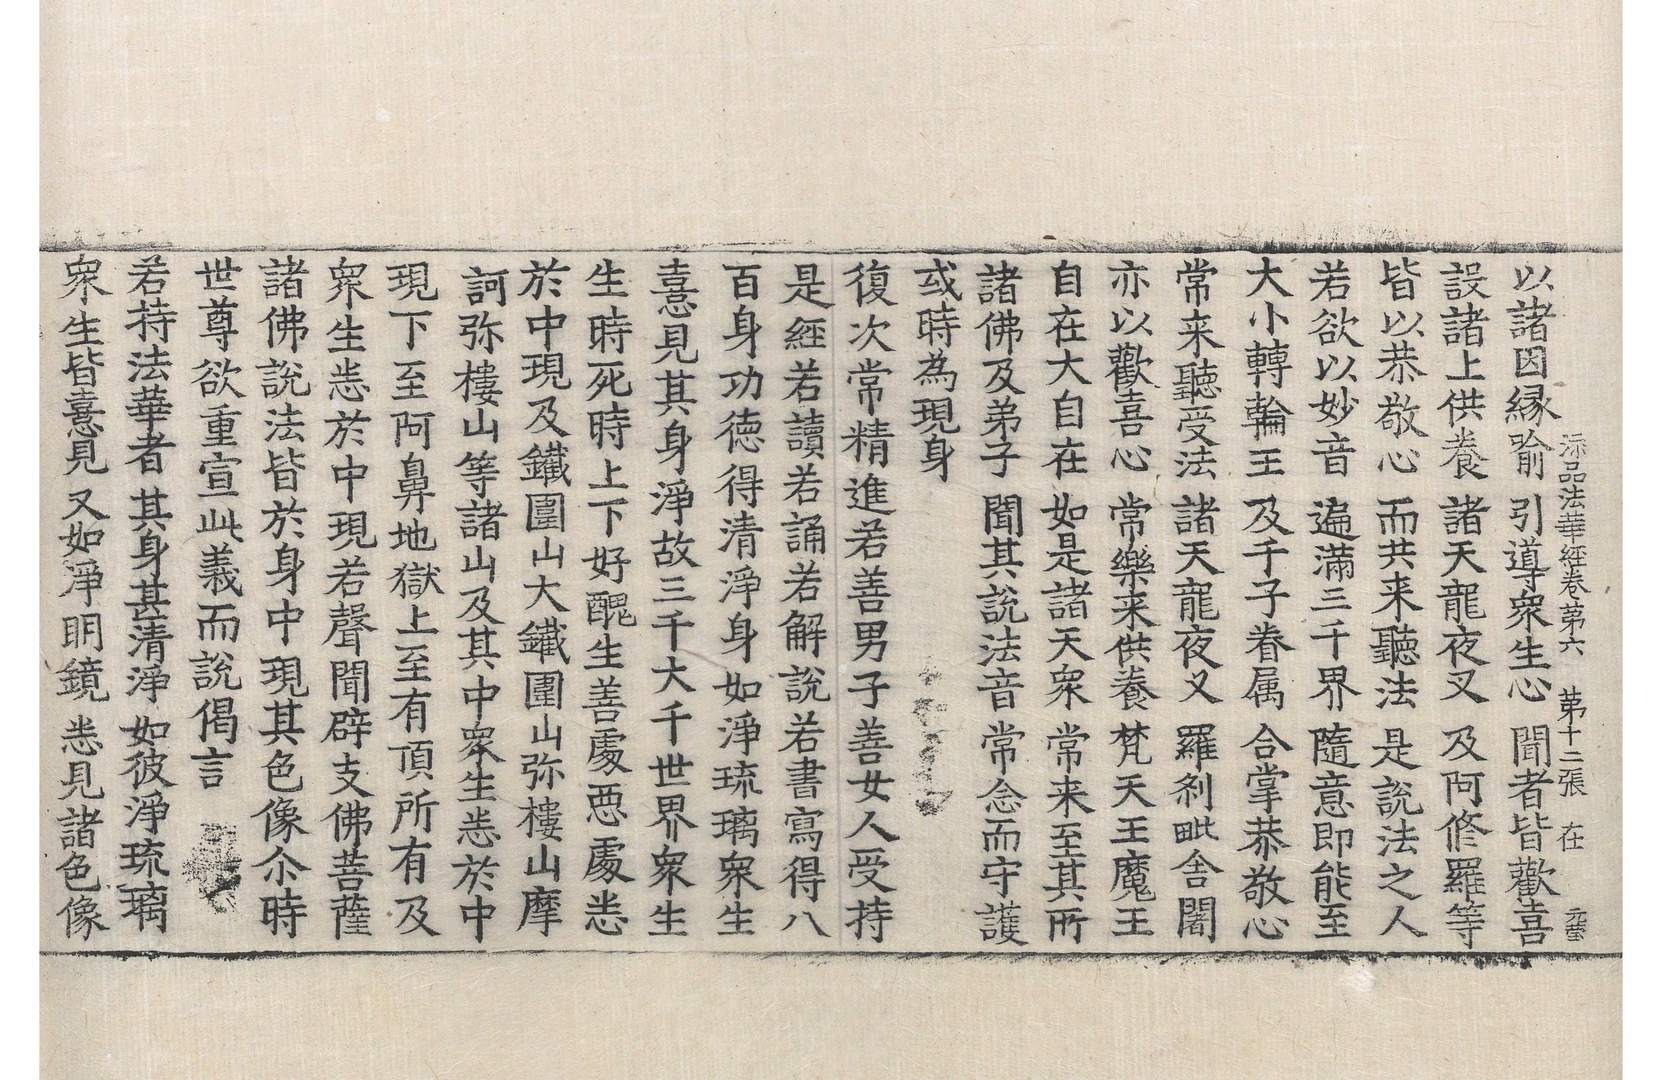 添品法華經卷第六　第十二張　在
以諸因縁喻　引導衆生心　聞者皆歡喜
設諸上供養　諸天龍夜叉　及阿修羅等
皆以恭敬心　而共来聽法　是說法之人
若欲以妙音　遍滿三千界　隨意即能至
大小轉輪王　及千子眷属　合掌恭敬心
常来聽受法　諸天龍夜叉　羅刹毗舍闍
亦以歡喜心　常樂来供養　梵天王魔王
自在大自在　如是諸天衆　常来至其所
諸佛及弟子　聞其說法音　常念而守護
或時為現身
復次常精進若善男子善女人受持
是經若讀若誦若解說若書寫得八
百身功德得清淨身如淨琉璃衆生
憙見其身淨故三千大千世界衆生
生時死時上下好醜生善處惡處悉
於中現及鐵圍山大鐵圍山弥樓山摩
訶弥樓山等諸山及其中衆生悉於中
現下至阿鼻地獄上至有頂所有及
衆生悉於中現若聲聞辟支佛菩薩
諸佛說法皆於身中現其色像尒時
世尊欲重宣此義而說偈言
若持法華者　其身甚清淨　如彼淨琉璃
衆生皆憙見　又如淨明鏡　悉見諸色像